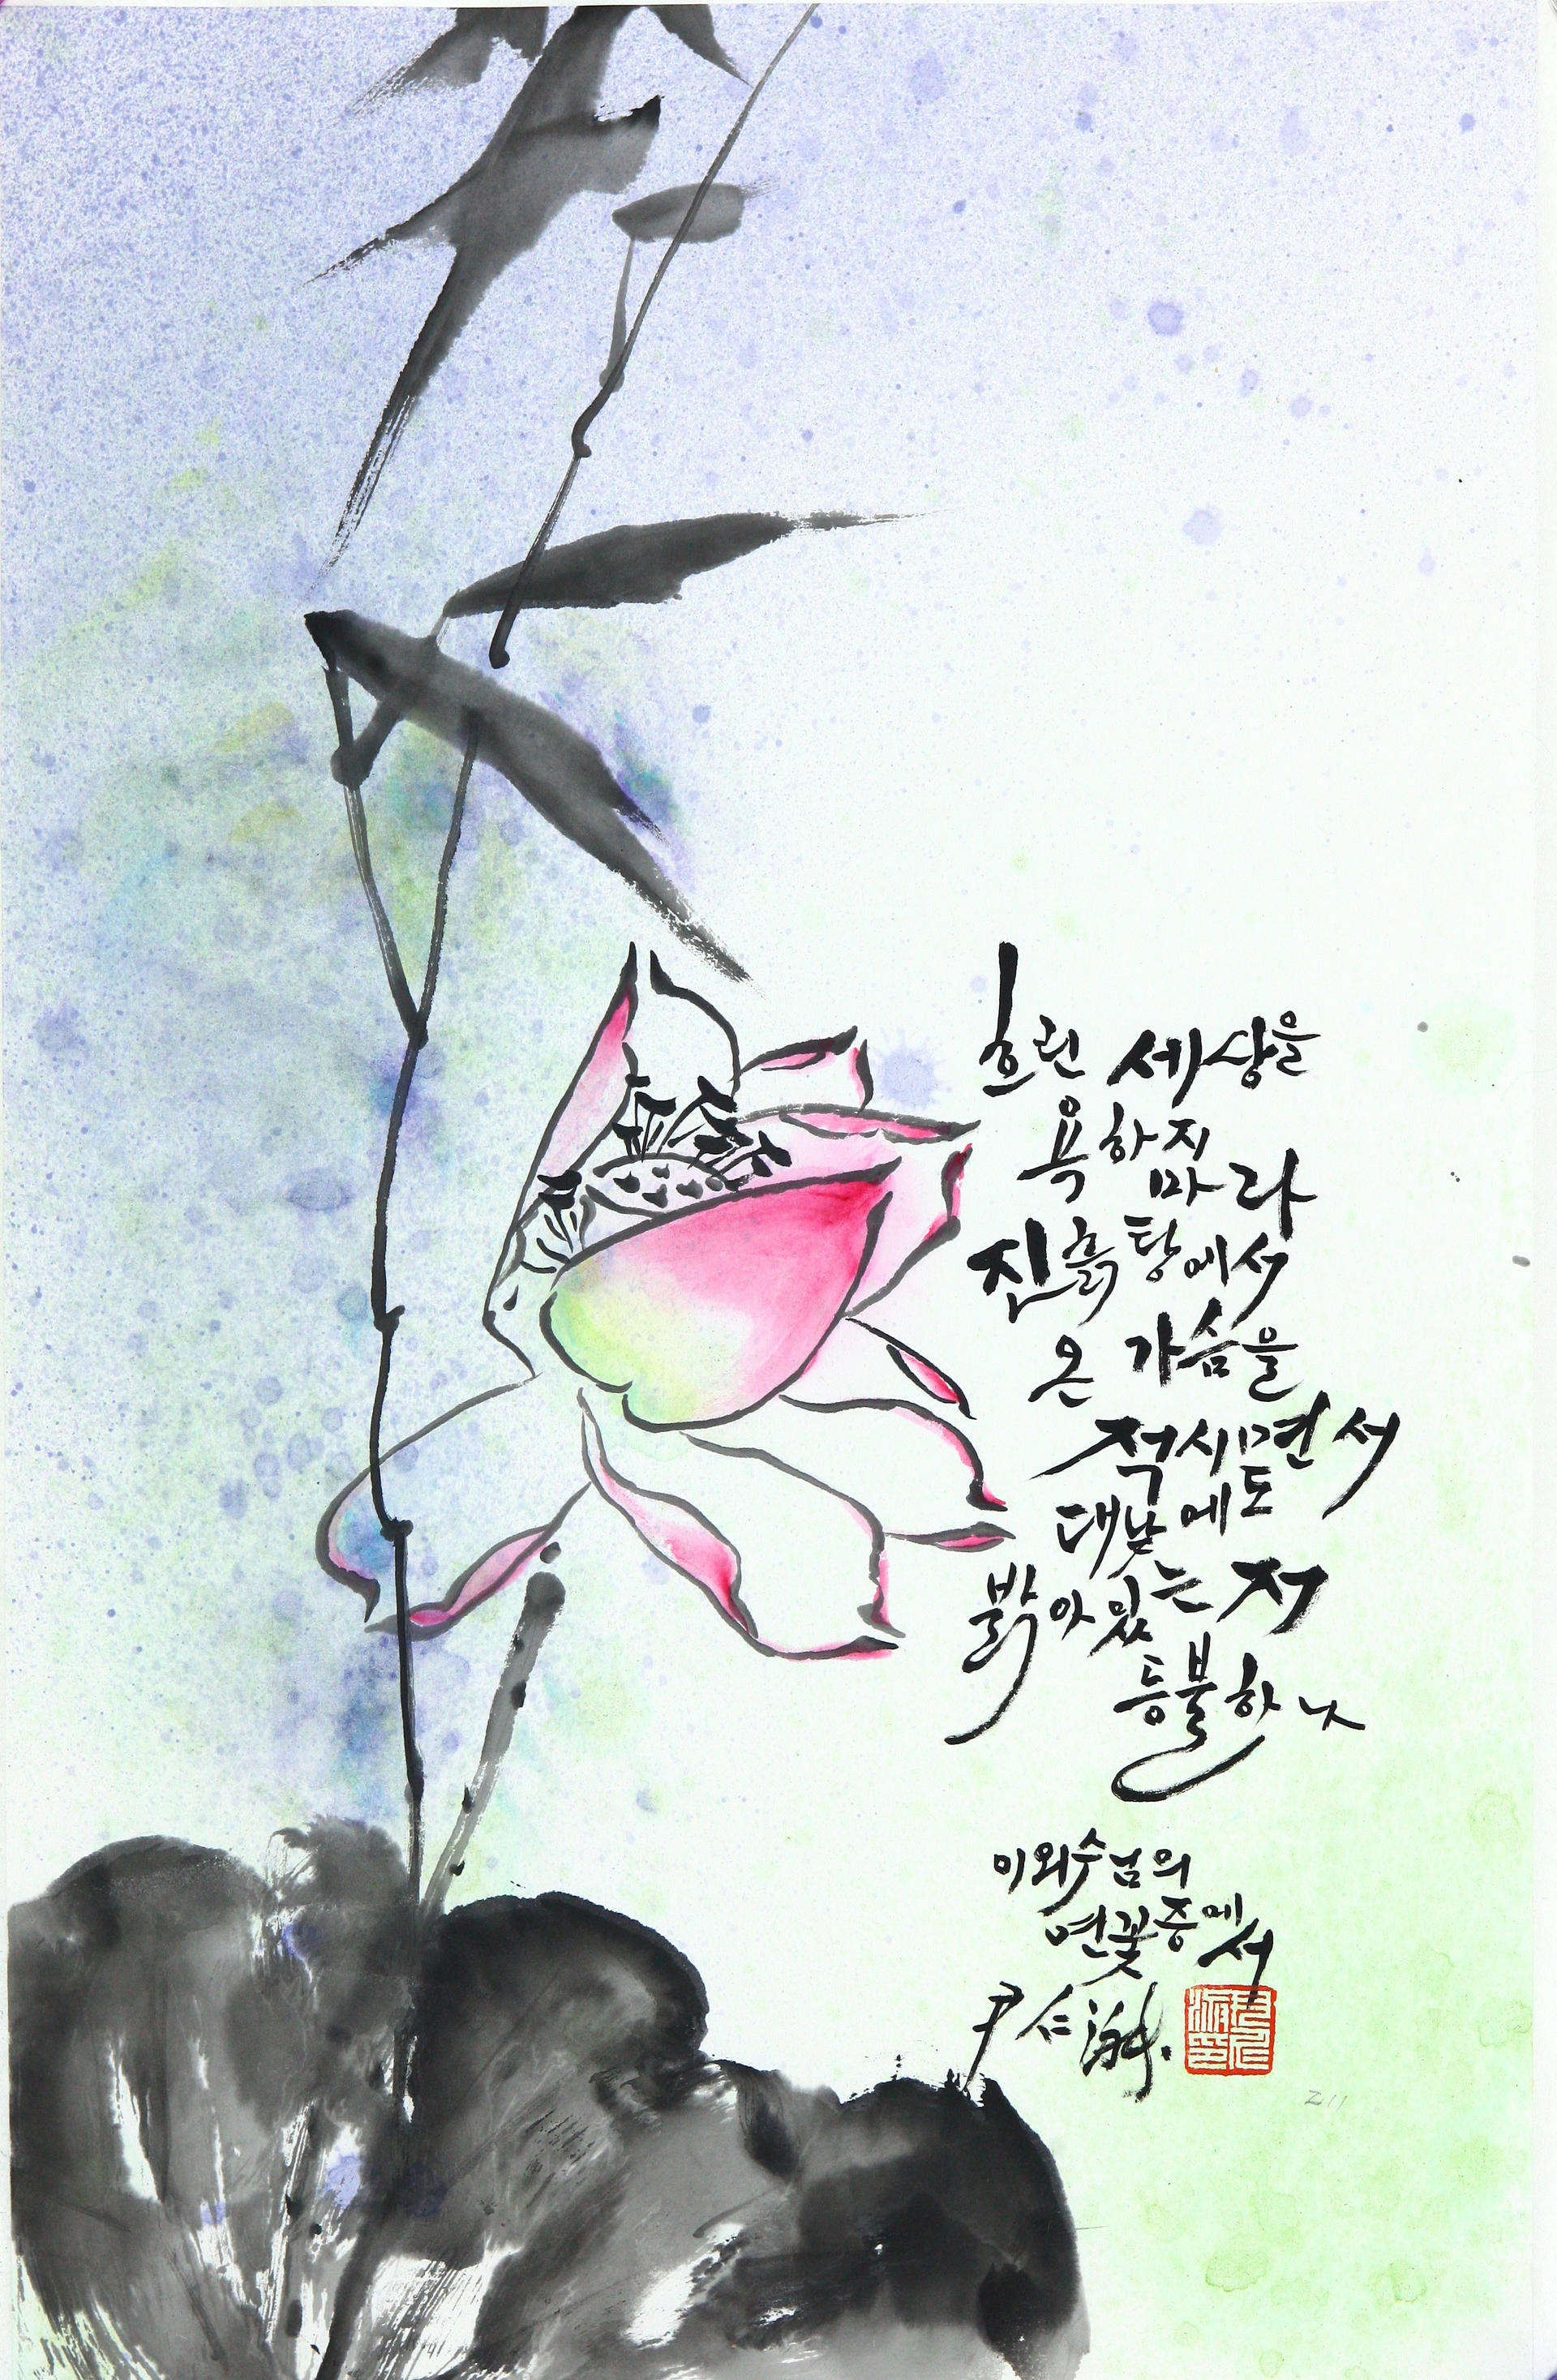 흐린 세상을
욕하지 마라
진흙탕에서
온 가슴을
적시면서
대낮에도
밝아있는 저
등불하나
이외수님의
연꽃중에서
尹仁淑